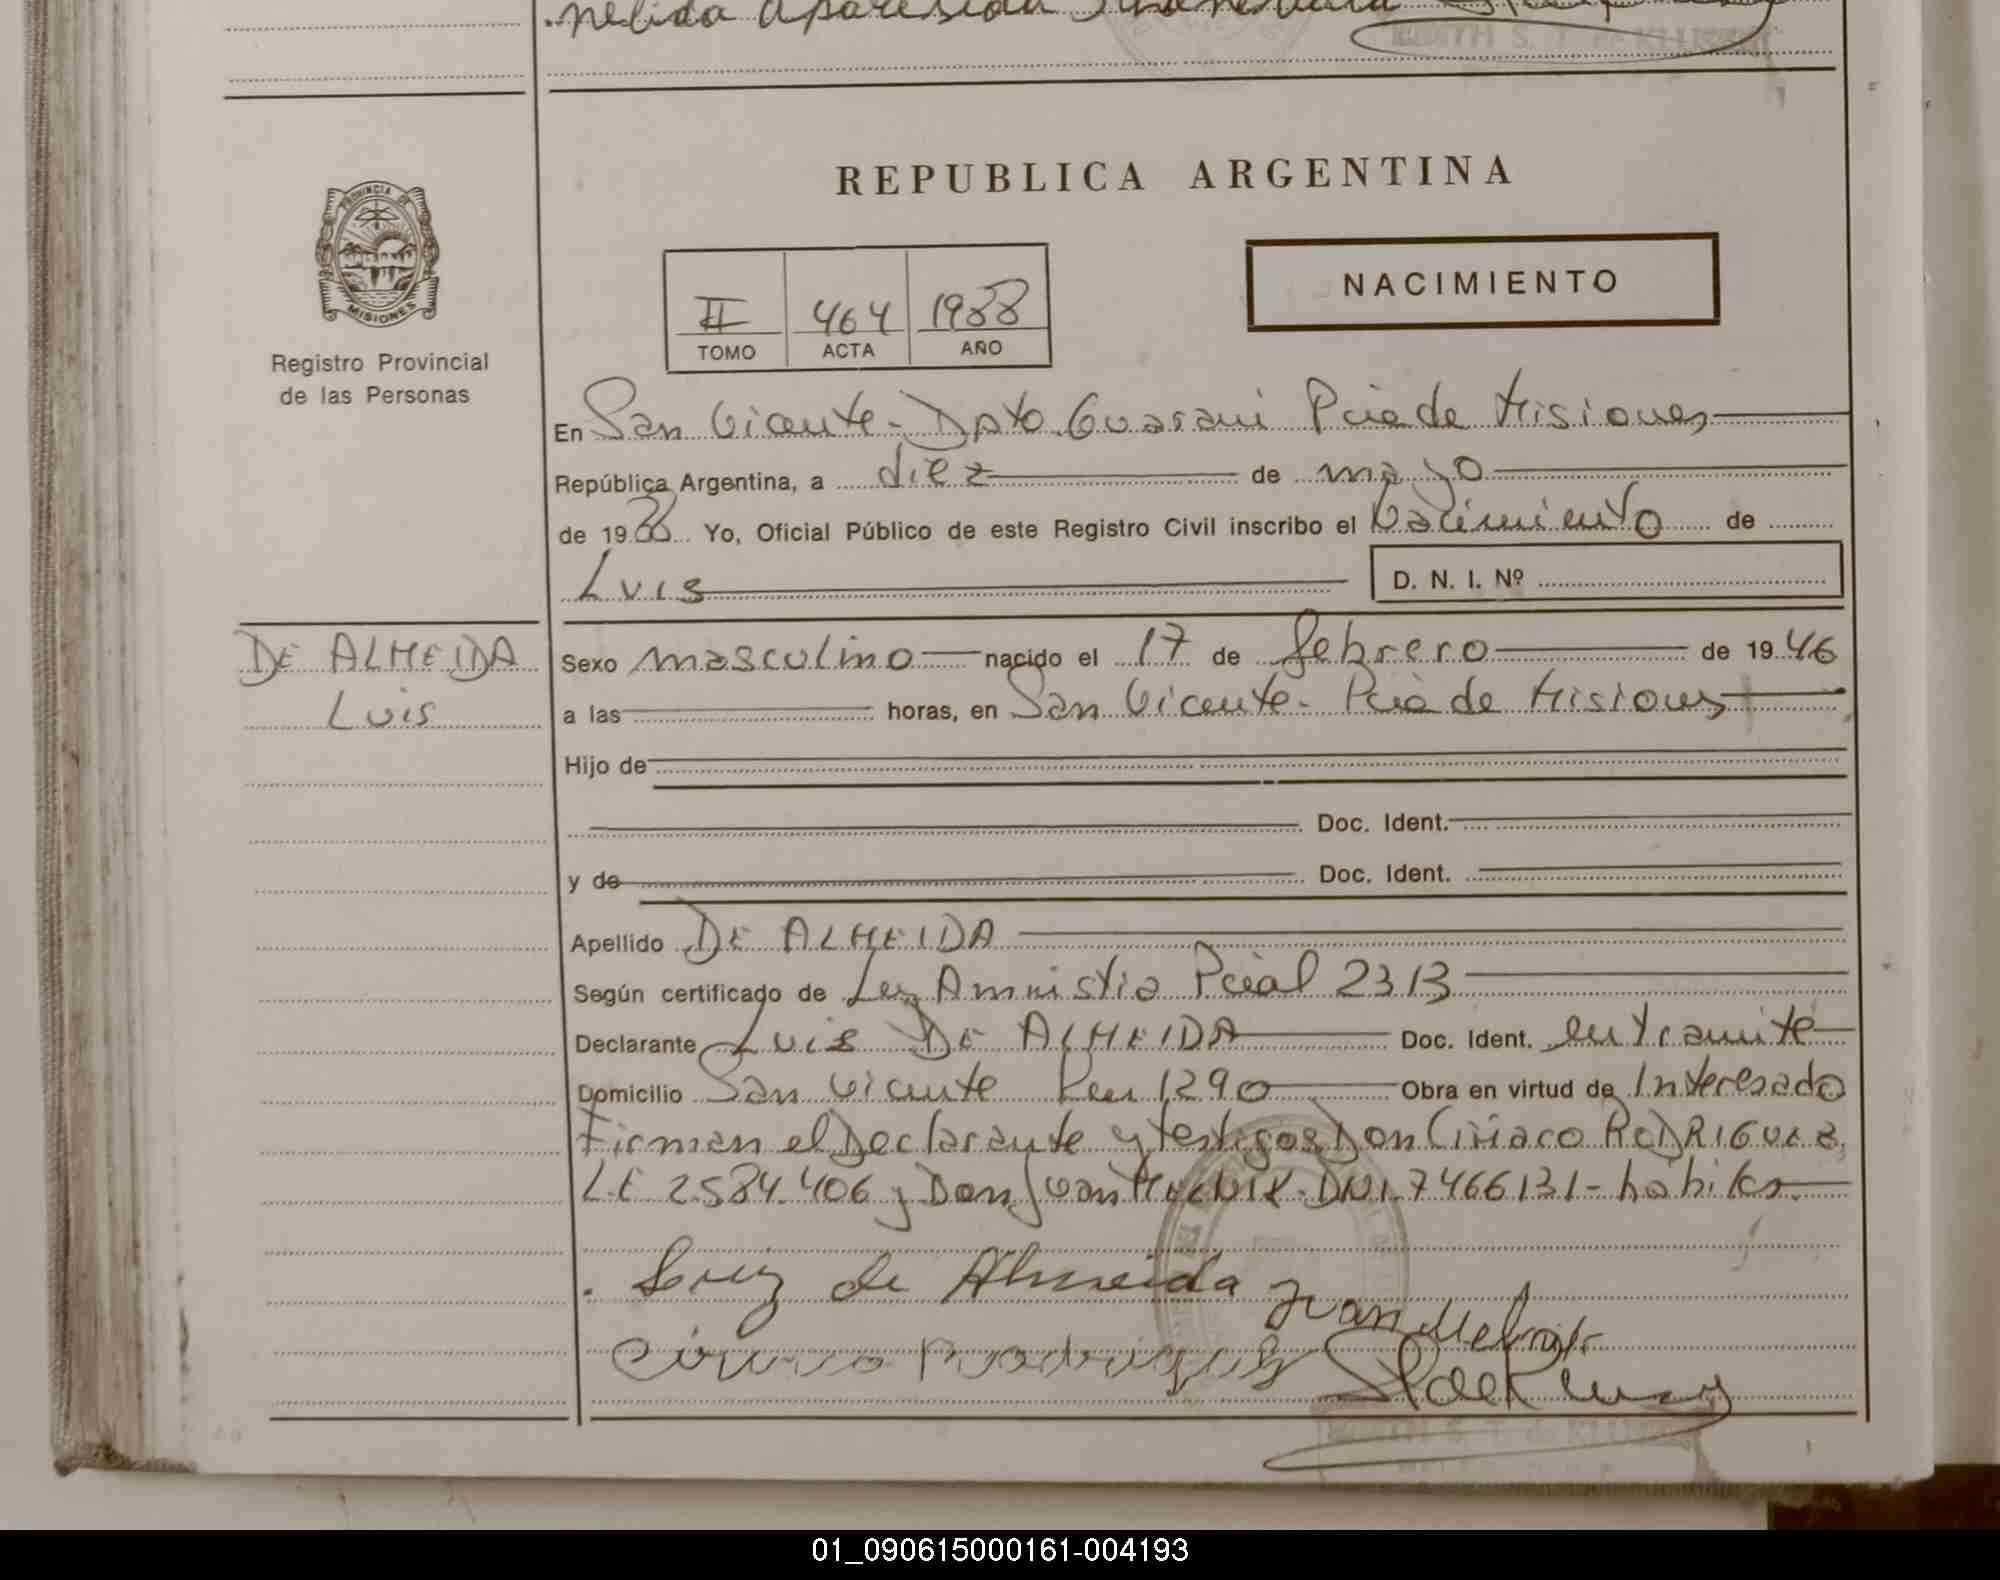 nelida aparesida
EDITH S. T. de KLUSKI
REPUBLICA ARGENTINA
PROVINCIA DE
MISIONES
NACIMIENTO
II 464 1988
TOMO ACTA AÑO
Registro Provincial
de las Personas
En San Vicente - Dpto. Guarani Pcia de Misiones
República Argentina, a diez de mayo
de 1988 Yo, Oficial Público de este Registro Civil inscribo el Nacimiento de
Luis D. N. I. Nº
DE ALMEIDA
Luis
Sexo masculino nacido el 17 de febrero de 1946
a las horas, en San Vicente - Pcia de Misiones
Hijo de
Doc. Ident.
y de Doc. Ident.
Apellido DE ALMEIDA
Según certificado de Ley Amnistia Pcial 2313
Declarante Luis DE ALMEIDA Doc. Ident. en tramite
Domicilio San Vicente Km 1290 Obra en virtud de Interesado
Firman el Declarante y testigos Don Ciriaco RODRIGUEZ,
L.E 2.584.406 y Don Juan - DNI. 7466131 - habiles.
Luiz de Almeida Juan
Rodriguez
01_090615000161-004193